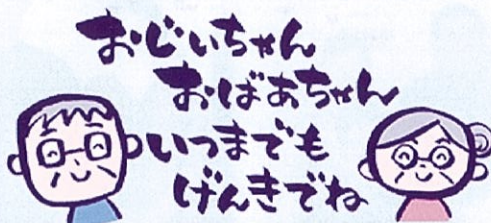 おじいちゃん
おばあちゃん
いつまでも
げんきでね